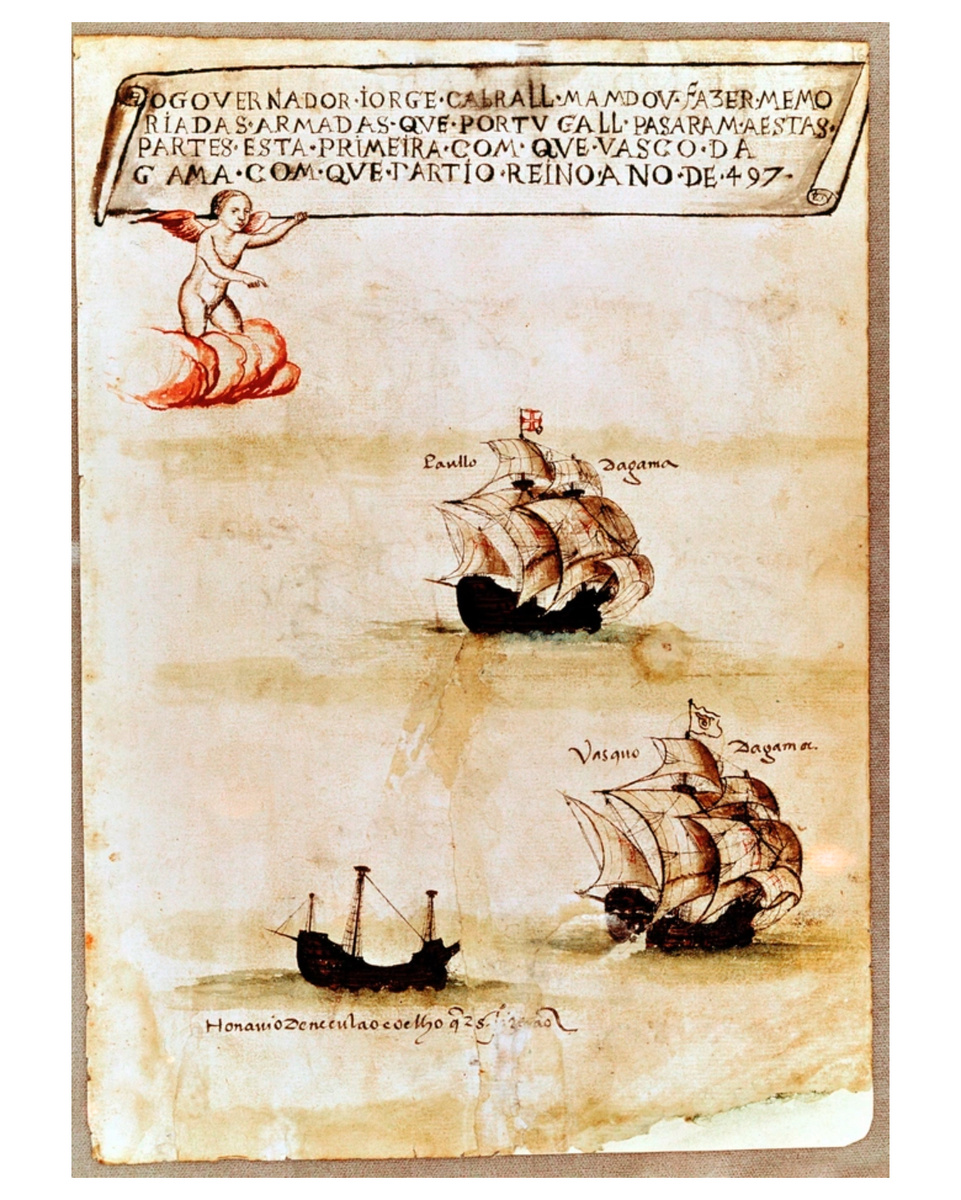 OGOVERNADOR·IORGE·CABRALL·MAMDOV·FAZER·MEMO
RIADAS·ARMADAS·QVE·PORTVGALL·PASARAM·AESTAS·
PARTES·ESTA·PRIMEIRA·COM·QVE·VASCO·DA
GAMA·COM·QVE·PARTIO·REINO·ANO·DE·497·
Paullo Dagama
Vasquo Dagama
Honauio Deneculao coelho